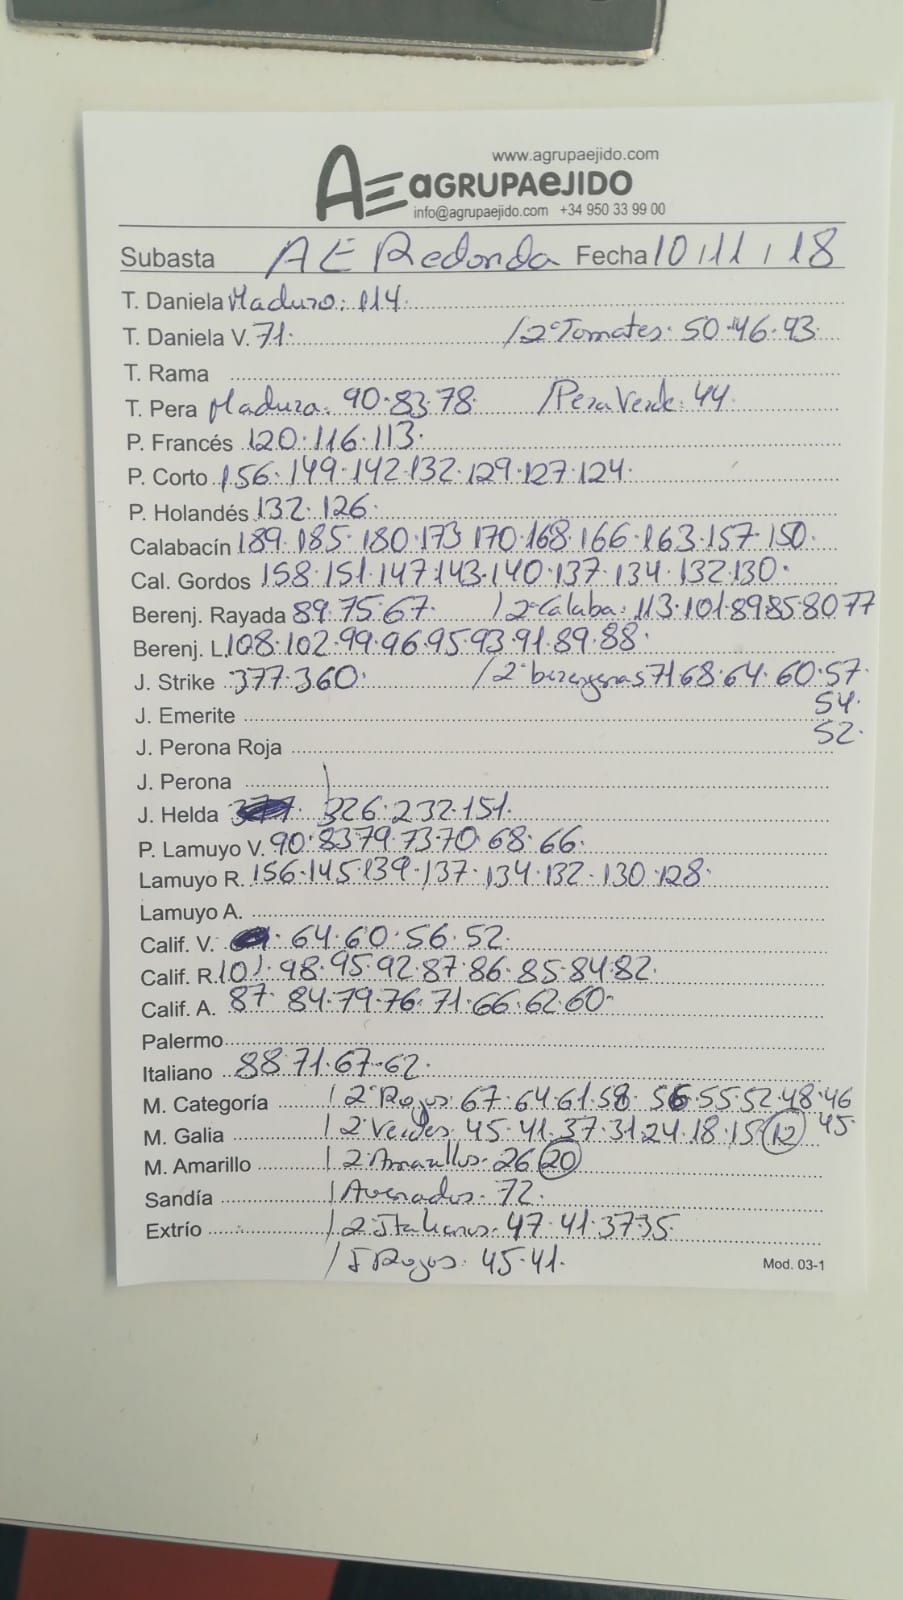 www.agrupaejido.com
AE AGRUPAEJIDO
info@agrupaejido.com +34 950 33 99 00
Subasta AE Redonda Fecha 10/11/18
T. Daniela Maduro: 114.
T. Daniela V. 71. /2ª Tomates: 50.46.43.
T. Rama
T. Pera Madura: 90.83.78 /Pera Verde: 44.
P. Francés 120.116.113.
P. Corto 156.149.142.132.129.127.124.
P. Holandés 132.126.
Calabacín 189.185.180.173 170.168.166.163.157.150.
Cal. Gordos 158.151.147.143.140.137.134.132.130.
Berenj. Rayada 89.75.67. /2ª Calaba: 113.101.89.85.80 77
Berenj. L. 108.102.99.96.95.93.91.89.88.
J. Strike 377.360. /2ª berengenas 71 68.64.60.57.
54.
J. Emerite
52.
J. Perona Roja
J. Perona
J. Helda 326.232.151.
P. Lamuyo V. 90.83 79.73.70.68.66.
Lamuyo R. 156.145.139.137.134.132.130.128.
Lamuyo A.
Calif. V. 64.60.56.52.
Calif. R. 101.98.95.92.87.86.85.84.82.
Calif. A. 87.84.79.76.71.66.62.60.
Palermo
Italiano 88 71.67.62.
M. Categoría /2ª Rojos: 67.64.61.58.56.55.52.48.46
M. Galia /2ª Verdes 45.41.37.31.24.18.15 12 45.
M. Amarillo /2ª Amarillos. 26 20
Sandía /Averiados. 72.
Extrío /2ª Italianos. 47.41.37.35.
/I Rojos. 45.41.
Mod. 03-1